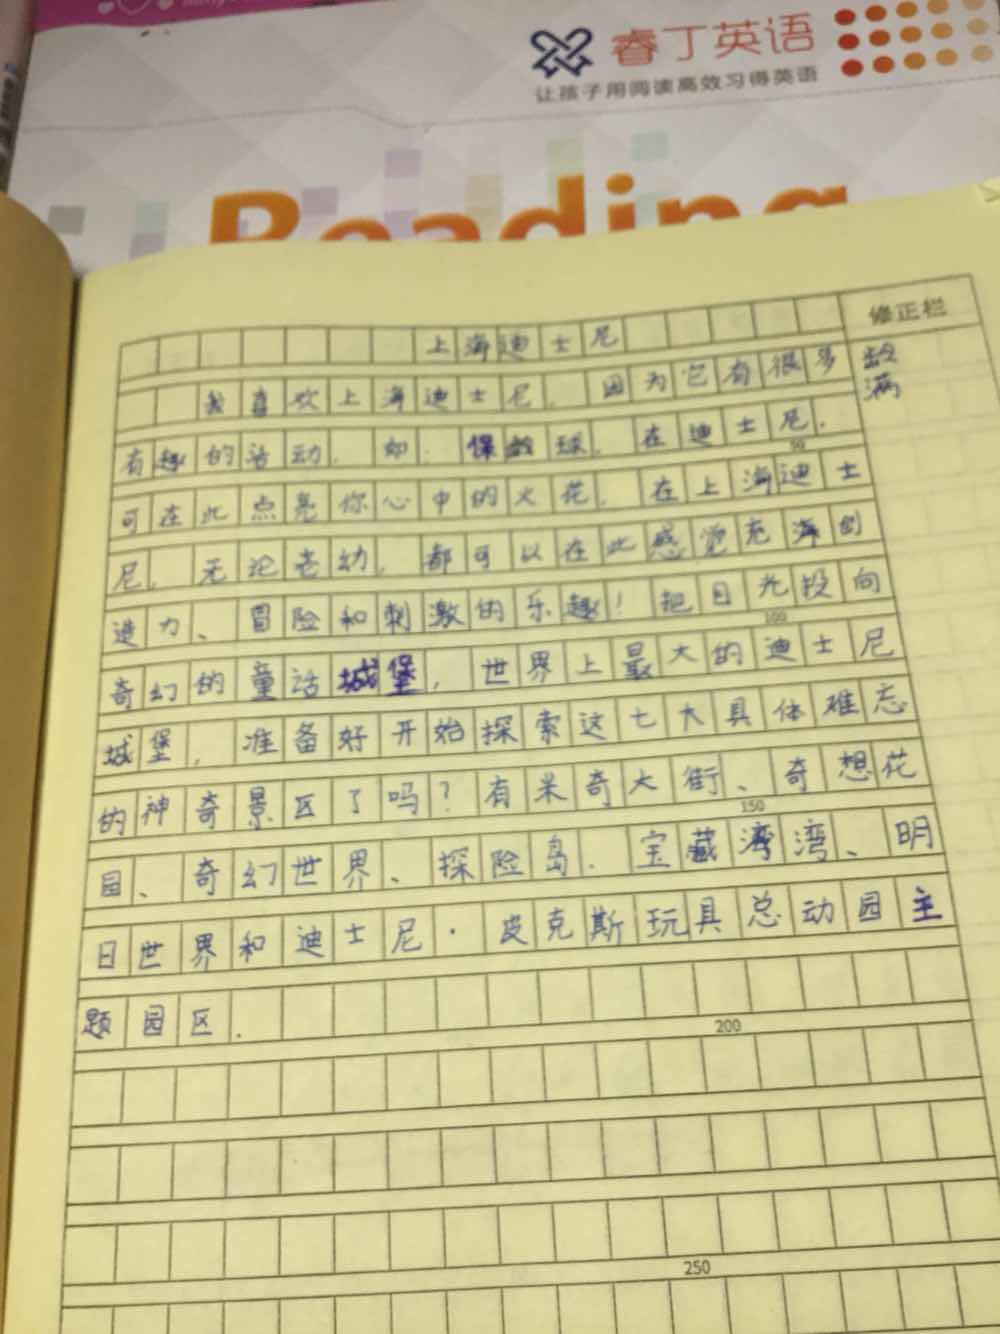 睿丁英语
让孩子用阅读高效习得英语
Reading
修正栏
上海迪士尼
我喜欢上海迪士尼．因为它有很多
龄
满
有趣的活动．如：保龄球．在迪士尼．
50
可在此点亮你心中的火花．在上海迪士
尼．无论老幼．都可以在此感觉充满创
造力、冒险和刺激的乐趣！把目光投向
100
奇幻的童话城堡，世界上最大的迪士尼
城堡，准备好开始探索这七大具体难忘
的神奇景区了吗？有米奇大街、奇想花
150
园、奇幻世界、探险岛．宝藏湾湾、明
日世界和迪士尼·皮克斯玩具总动园主
题园区．
200
250